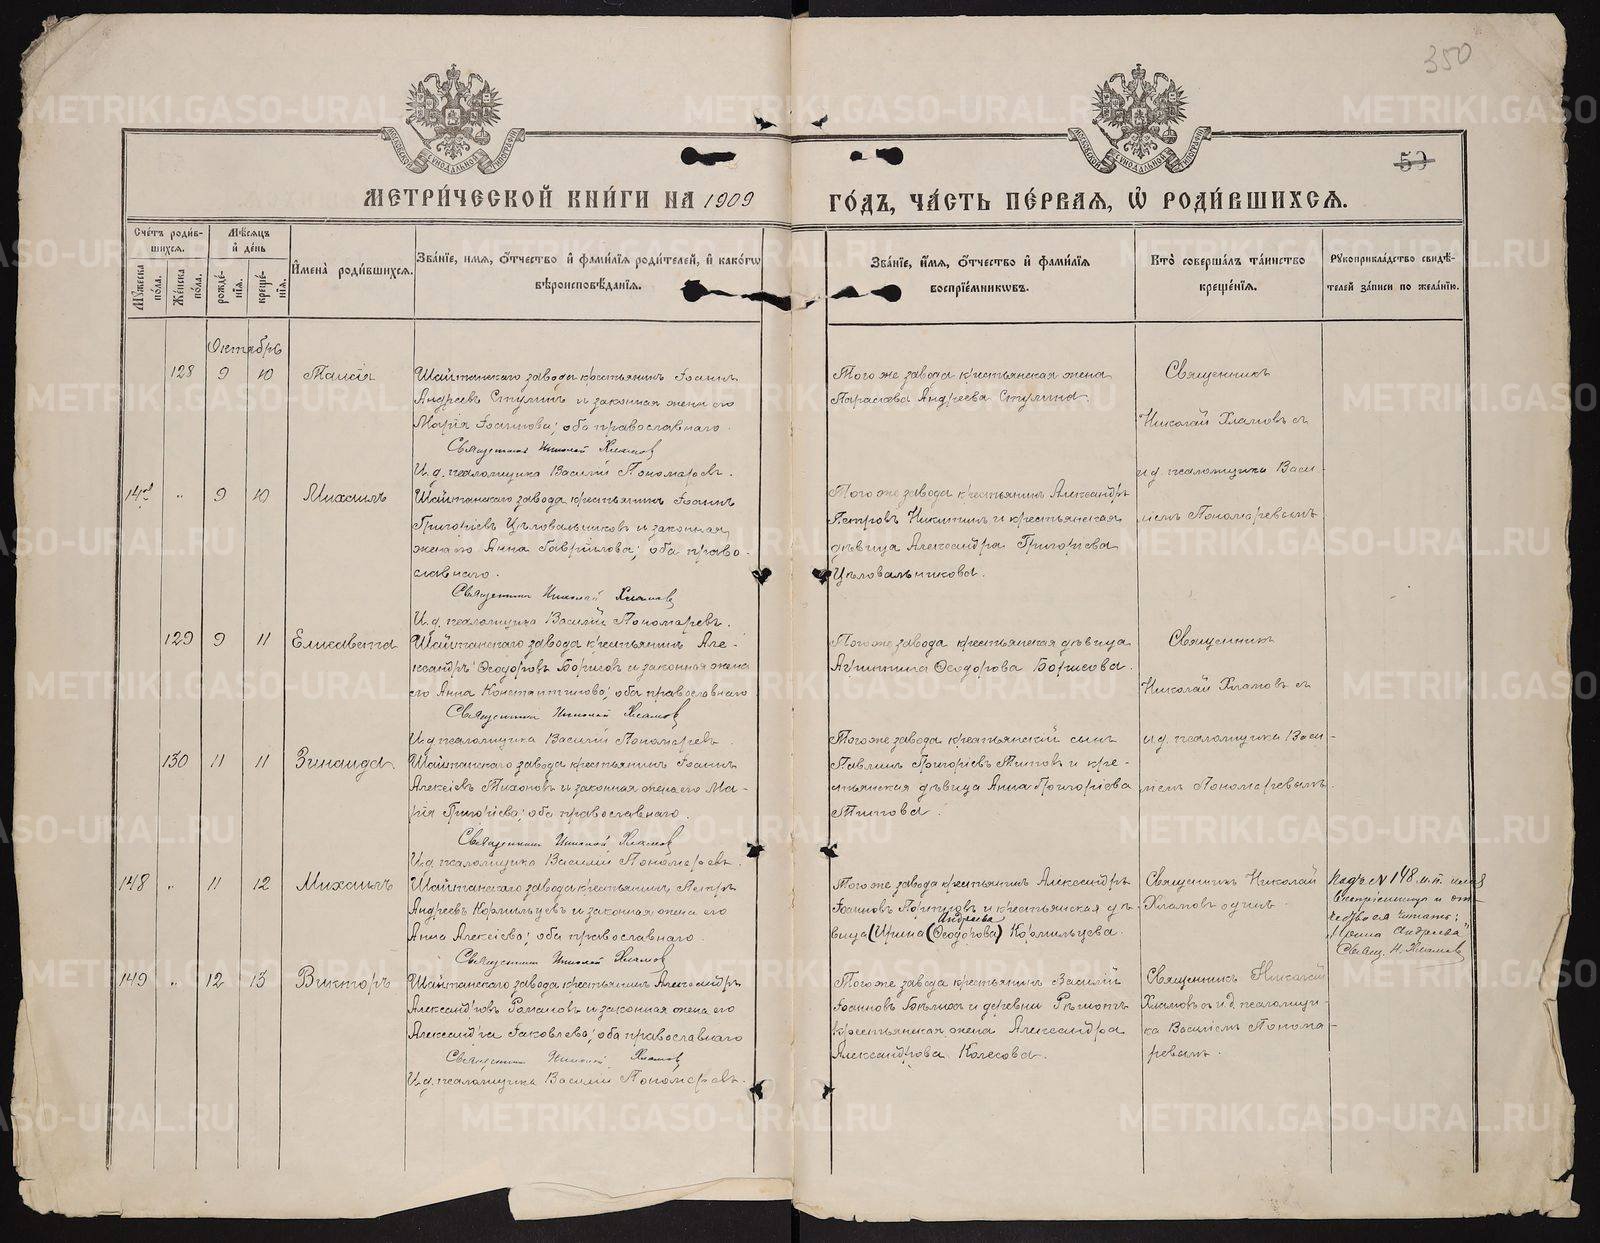 350
50
МЕТРИ́ЧЕСКОЙ КНИ́ГИ НА 1909 ГО́ДЪ, ЧА́СТЬ ПЕ́РВАЯ, Ѡ҆ РОДИ́ВШИХСЯ.
Счетъ роди́вшихся.
Му́жеска по́ла.
Же́нска по́ла.
Мѣ́сяцъ и҆ де́нь
рожде́нїя.
креще́нїя.
И҆мена̀ роди́вшихся.
Зва́нїе, и҆́мя, ѻ҆́тчество и҆ фами́лїя роди́телей, и҆ како́гѡ
вѣроисповѣ́данїя.
Зва́нїе, и҆́мя, ѻ҆́тчество и҆ фами́лїя
воспрїе́мникѡвъ.
Кто̀ соверша́лъ та́инство
креще́нїя.
Рꙋкоприкла́дство свидѣ́-
телей за́писи по жела́нїю.
Октябрь
128 9 10 Таисія
Шайтанскаго завода крестьянинъ Іоаннъ
Андреевъ Стулинъ и законная жена его
Марія Іоаннова; оба православнаго.
Священникъ Николай Хламовъ
И.д. псаломщика Василій Пономаревъ.
Того же завода крестьянская жена
Параскева Андреева Стулина.
Священникъ
Николай Хламовъ съ
и.д. псаломщика Васи-
ліемъ Пономаревымъ
147 " 9 10 Михаилъ
Шайтанскаго завода крестьянинъ Іоаннъ
Григоріевъ Цѣловальниковъ и законная
жена его Анна Гавріилова; оба право-
славнаго.
Священникъ Николай Хламовъ
И.д. псаломщика Василій Пономаревъ.
Того же завода крестьянинъ Александръ
Петровъ Никитинъ и крестьянская
дѣвица Александра Григоріева
Цѣловальникова.
129 9 11 Елисавета
Шайтанскаго завода крестьянинъ Але-
ксандръ Ѳеодоровъ Борисовъ и законная жена
его Анна Константинова; оба православнаго
Священникъ Николай Хламовъ
И.д. псаломщика Василій Пономаревъ
Того же завода крестьянская дѣвица
Ѳеодорова Борисова.
Священникъ
Николай Хламовъ съ
и.д. псаломщика Васи-
ліемъ Пономаревымъ.
130 11 11 Зинаида
Шайтанскаго завода крестьянинъ Іоаннъ
Алексіевъ Тихоновъ и законная жена его Ма-
рія Григоріева; оба православнаго.
Священникъ Николай Хламовъ
И.д. псаломщика Василій Пономаревъ.
Того же завода крестьянскій сынъ
Павлинъ Григоріевъ Титовъ и кре-
стьянская дѣвица Анна Григоріева
Титова.
148 " 11 12 Михаилъ
Шайтанскаго завода крестьянинъ Петръ
Андреевъ Кормильцевъ и законная жена его
Анна Алексіева; оба православнаго.
Священникъ Николай Хламовъ
Того же завода крестьянинъ Александръ
Іоанновъ и крестьянская дѣ-
Андреева
вица (Ирина (Ѳеодорова) Кормильцева.
Священникъ Николай
Хламовъ одинъ.
Подъ № 148 м.п. имя
и от-
чество читать:
"Ирина Андреева"
Свящ. Н. Хламовъ
149 " 12 13 Викторъ
Шайтанскаго завода крестьянинъ Александръ
Александровъ Романовъ и законная жена его
Александра Іаковлева; оба православнаго
Священникъ Николай Хламовъ
И.д. псаломщика Василій Пономаревъ.
Того же завода крестьянинъ Василій
Іоанновъ и деревни
крестьянская жена Александра
Александрова Колесова.
Священникъ Николай
Хламовъ съ и.д. псаломщи-
ка Василіемъ Понома-
ревымъ.
METRIKI.GASO-URAL.RU